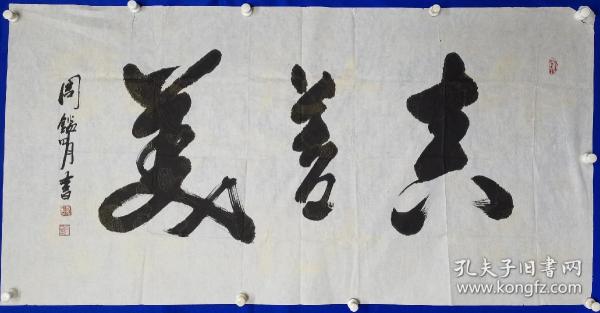 真善美
周鑑明书
孔夫子旧书网
www.kongfz.com